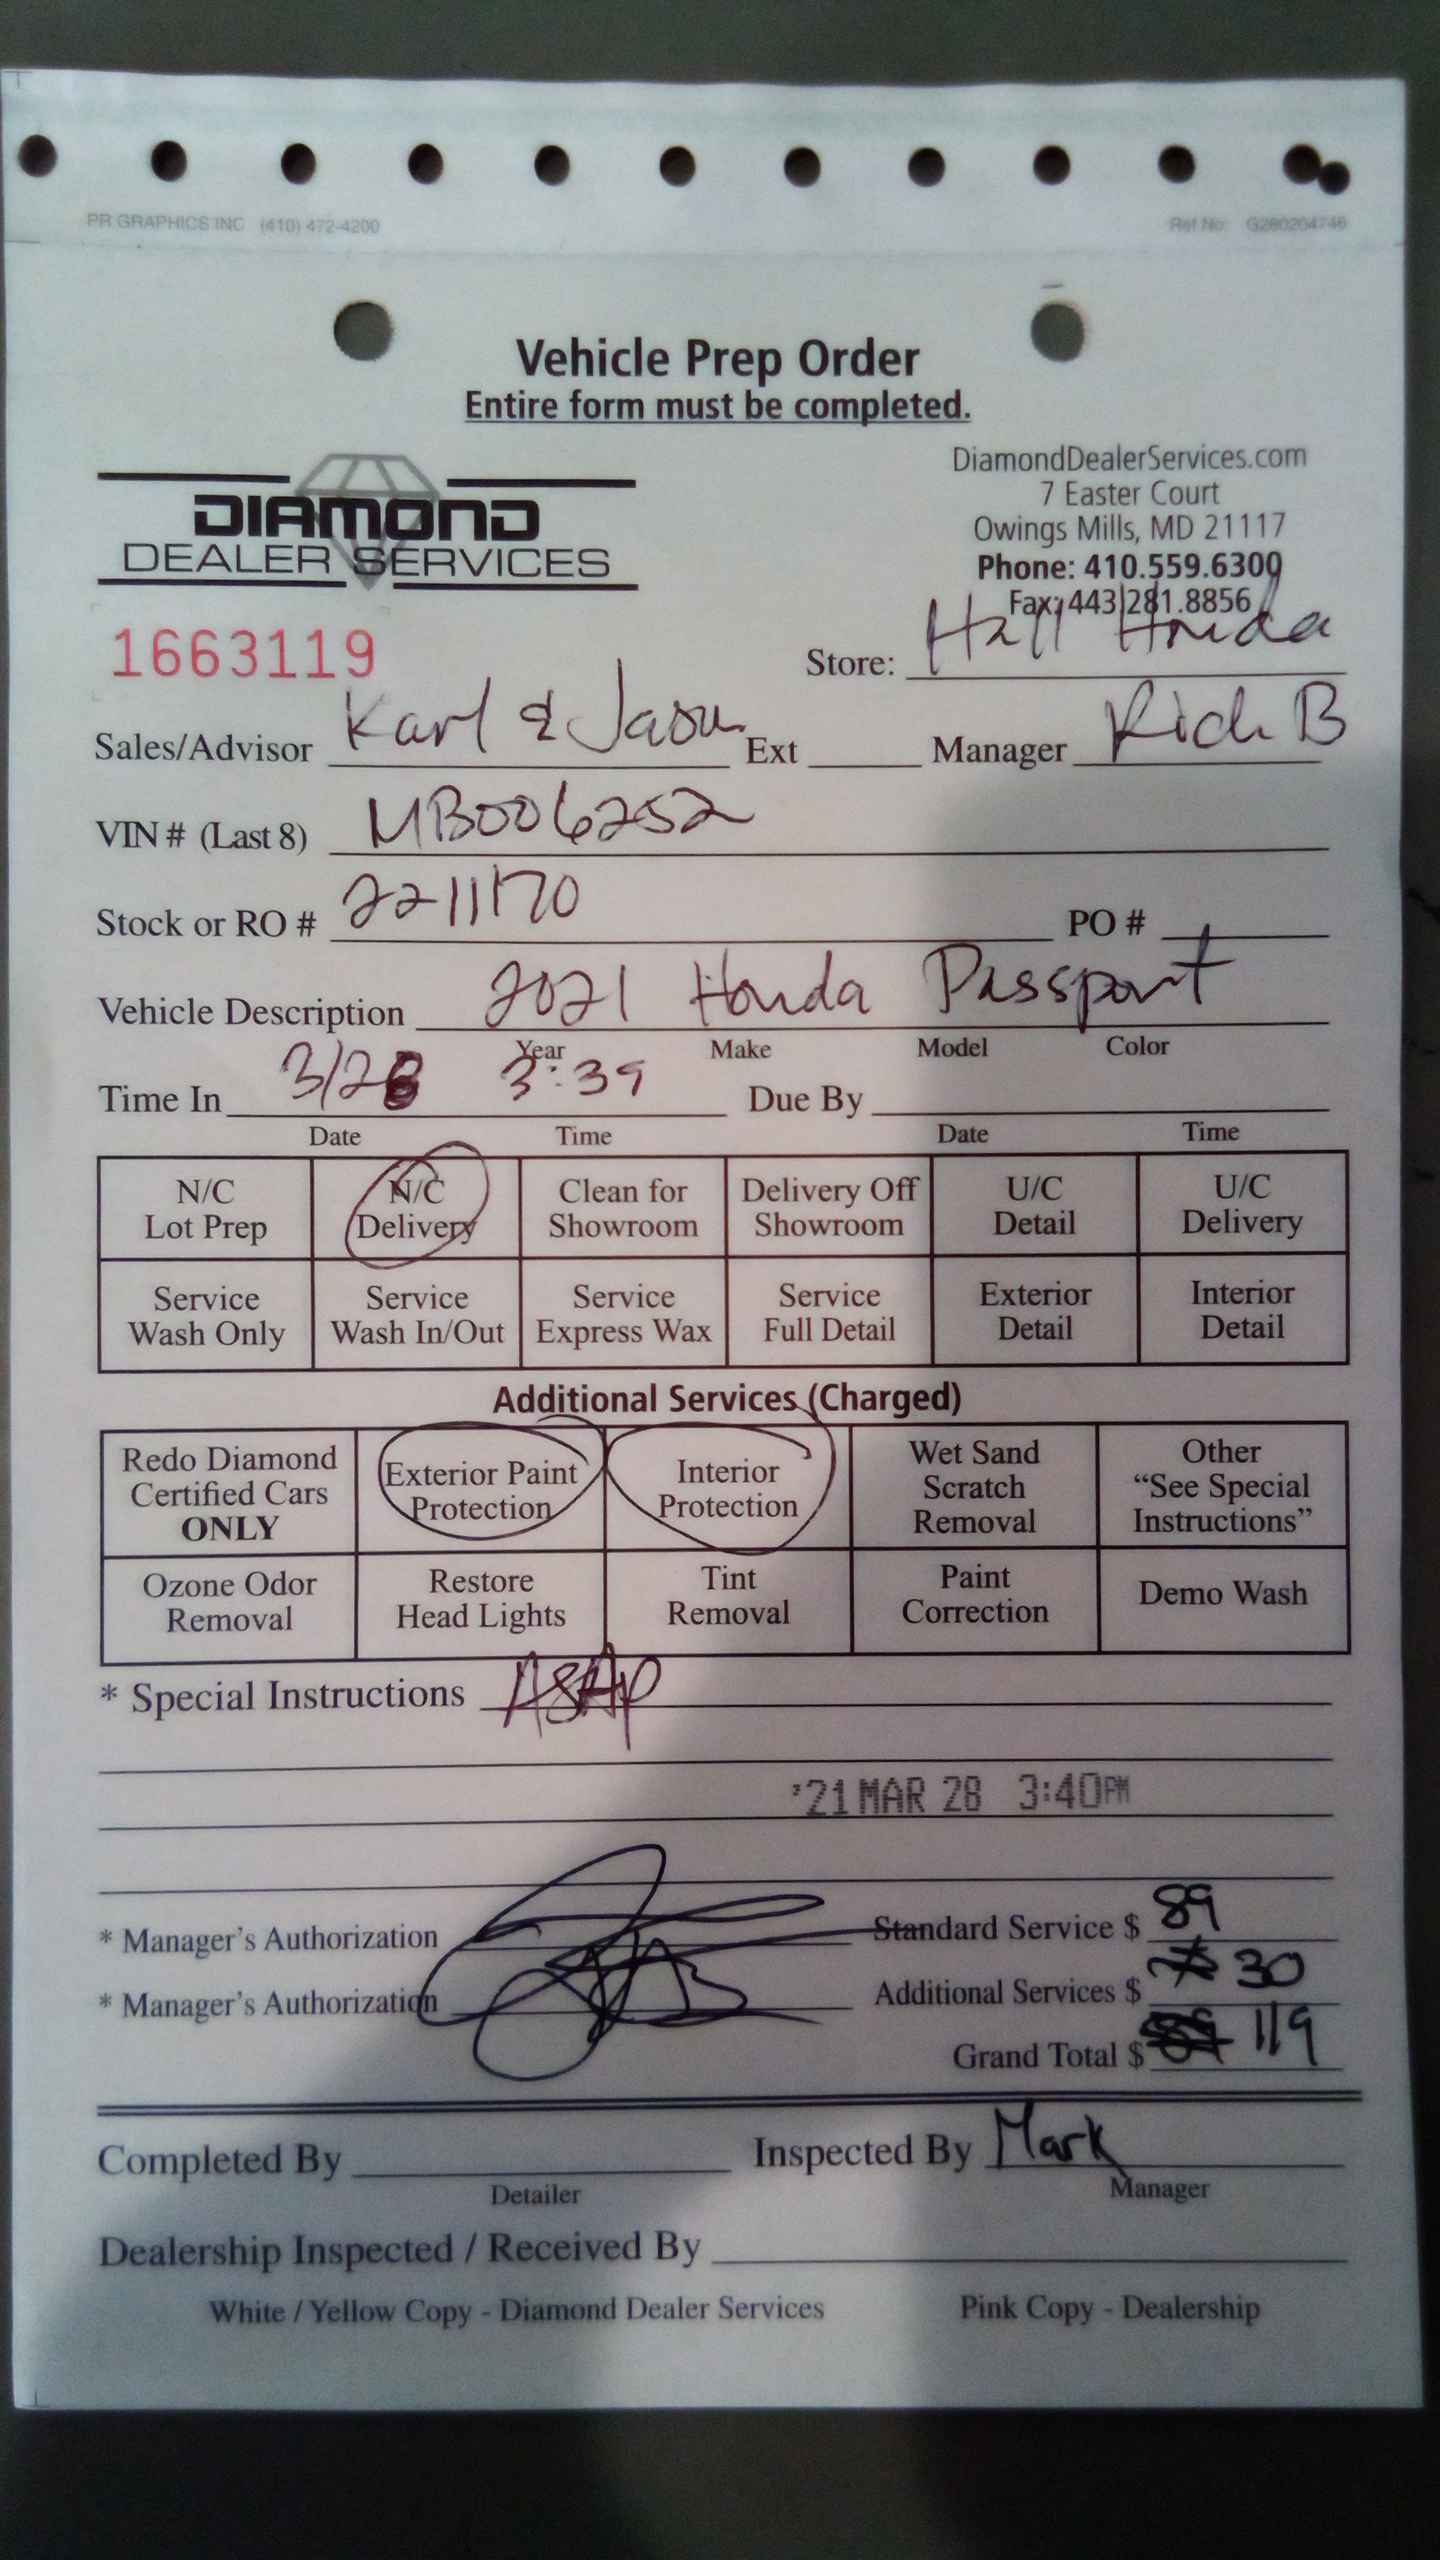 PR GRAPHICS INC (410) 472-4200 Ref No: G280204746
Vehicle Prep Order
Entire form must be completed.
DIAMOND
DEALER SERVICES
DiamondDealerServices.com
7 Easter Court
Owings Mills, MD 21117
Phone: 410.559.6300
Fax: 443.281.8856
1663119
Store: Hall Honda
Sales/Advisor Karl & Jason Ext Manager Rich B
VIN # (Last 8) MB006252
Stock or RO # 2211170 PO #
Vehicle Description 2021 Honda Passport
Year Make Model Color
Time In 3/28 3:39 Due By
Date Time Date Time
N/C Lot Prep
N/C Delivery
Clean for Showroom
Delivery Off Showroom
U/C Detail
U/C Delivery
Service Wash Only
Service Wash In/Out
Service Express Wax
Service Full Detail
Exterior Detail
Interior Detail
Additional Services (Charged)
Redo Diamond Certified Cars ONLY
Exterior Paint Protection
Interior Protection
Wet Sand Scratch Removal
Other “See Special Instructions”
Ozone Odor Removal
Restore Head Lights
Tint Removal
Paint Correction
Demo Wash
* Special Instructions ASAP
'21 MAR 28 3:40PM
* Manager's Authorization Standard Service $ 89
* Manager's Authorization Additional Services $ 30
Grand Total $ 89 119
Completed By Inspected By Mark
Detailer Manager
Dealership Inspected / Received By
White / Yellow Copy - Diamond Dealer Services Pink Copy - Dealership